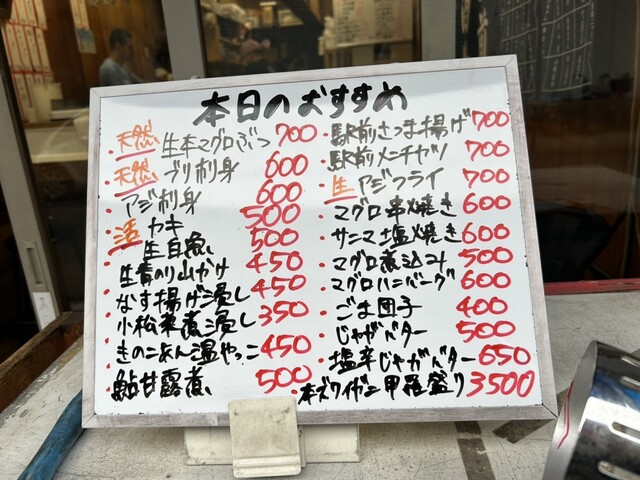 本日のおすすめ
天然 生本マグロぶつ 700
天然 ブリ刺身 600
・アジ刺身 600
活 カキ 500
・生白魚 500
・生青のり山かけ 450
・なす揚げ浸し 450
・小松菜煮浸し 350
・きのこあん温やっこ 450
・鮎甘露煮 500
・駅前さつま揚げ 700
・駅前メンチカツ 700
・生アジフライ 700
・マグロ串焼き 600
・サンマ塩焼き 600
・マグロ煮込み 500
・マグロハンバーグ 600
・ごま団子 400
・じゃがバター 500
・塩辛じゃがバター 650
・本ズワイガニ甲羅盛り 3500